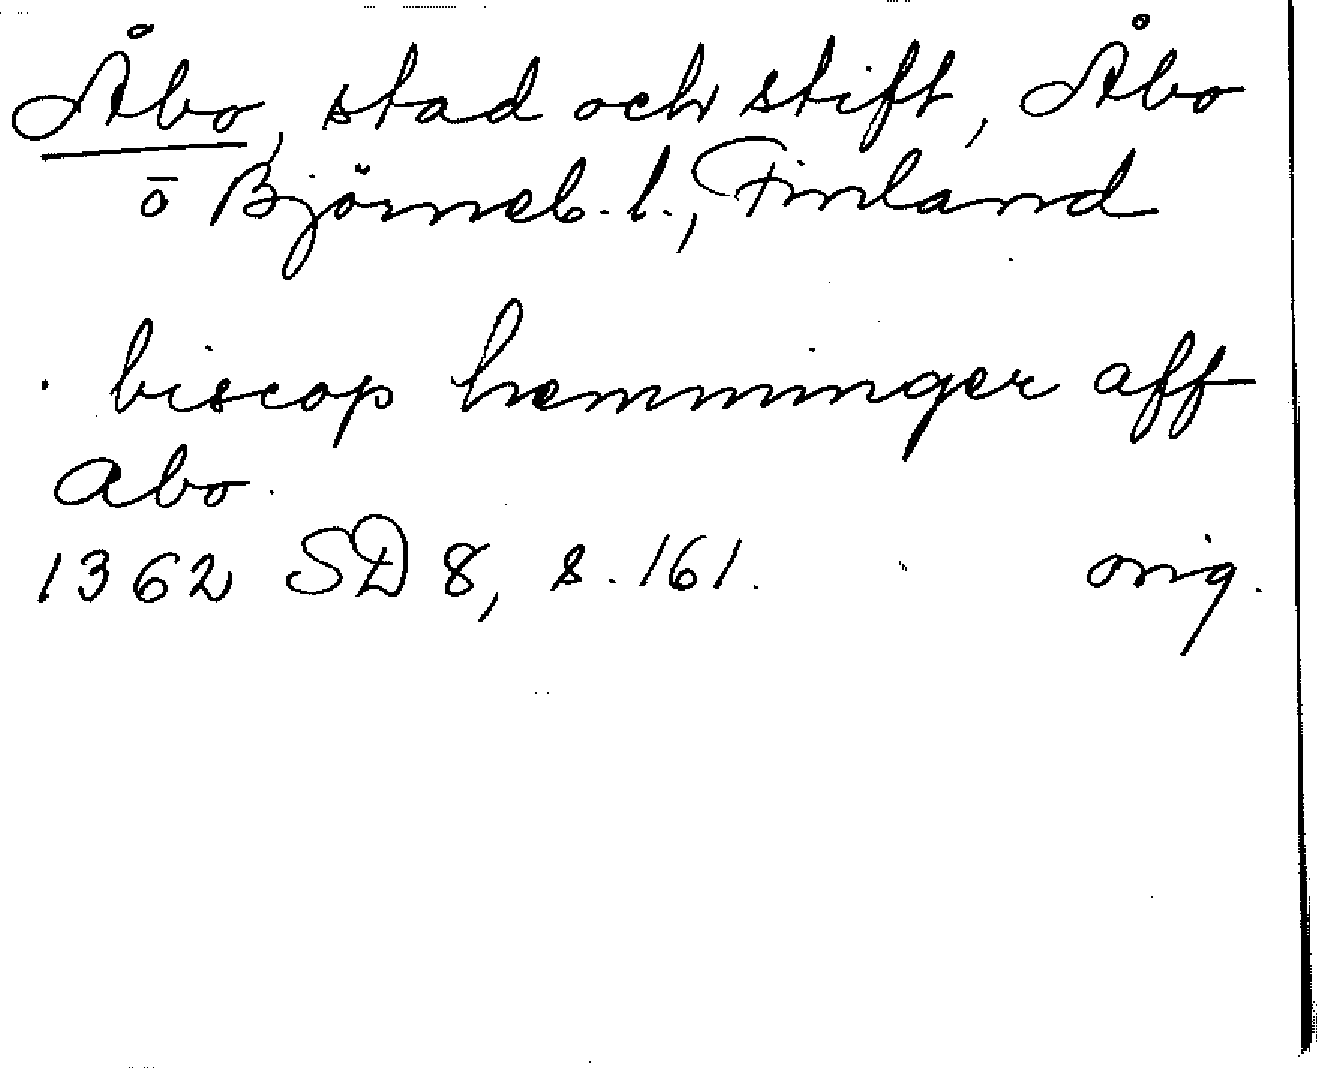 Åbo, stad och stift, Åbo
ō Björneb. l., Finland
biscop hemminger aff
abo.
1362 SD 8, s. 161. orig.